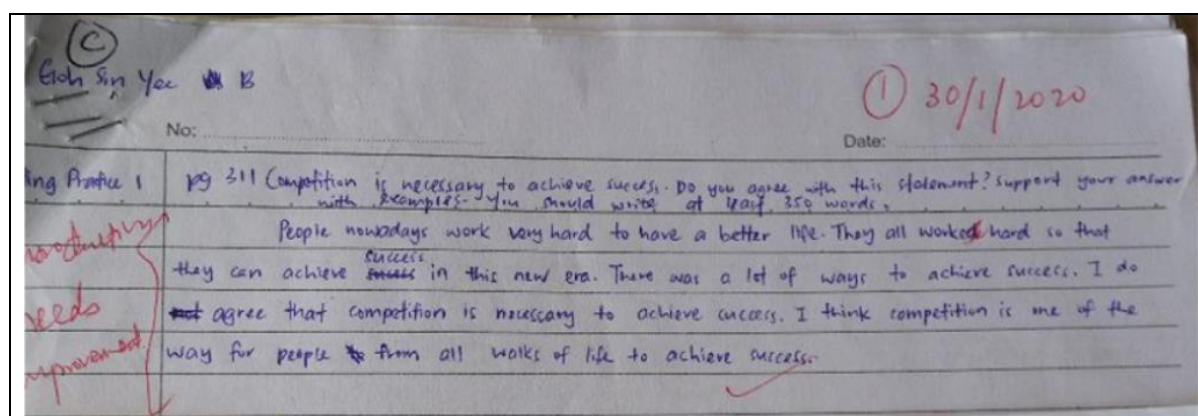 C
Goh Sin Yee B
1 30/1/2020
No:
Date:
ing Practice 1
pg 311 Competition is necessary to achieve success. Do you agree with this statement? support your answer
with examples. You should write at least 350 words.
People nowadays work very hard to have a better life. They all worked hard so that
they can achieve success in this new era. There was a lot of ways to achieve success. I do
not agree that competition is necessary to achieve success. I think competition is one of the
way for people from all walks of life to achieve success.
needs
improvement